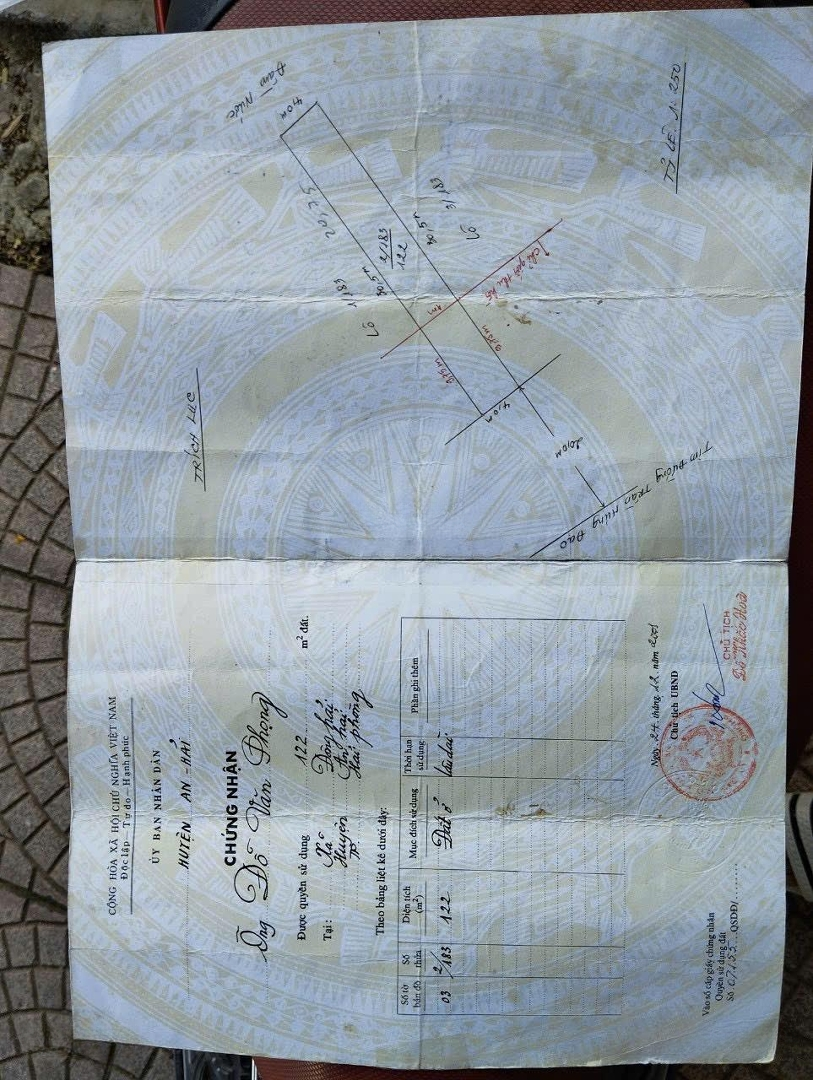 CỘNG HÒA XÃ HỘI CHỦ NGHĨA VIỆT NAM
Độc lập - Tự do - Hạnh phúc
ỦY BAN NHÂN DÂN
HUYỆN AN-HẢI
CHỨNG NHẬN
Ông Đỗ Văn Phong
Được quyền sử dụng 122 m² đất.
Tại: Xã Đông hải
Huyện An hải
TP Hải phòng
Theo bảng liệt kê dưới đây:
Số tờ bản đồ
Số thửa
Diện tích (m²)
Mục đích sử dụng
Thời hạn sử dụng
Phần ghi thêm
03 2/183 122 Đất ở lâu dài
Ngày 24 tháng 12 năm 2001
Chủ tịch UBND
CHỦ TỊCH
Vào sổ cấp giấy chứng nhận
Quyền sử dụng đất
Số 07155 QSDĐ/
TRÍCH LỤC
TỶ LỆ 1:250
Đầm Nước
4,0m
20,75
1/183
30,5m
2/183
122
30,5m
3/183
Vô
Vô
chỉ giới
4m
9,75m
9,75m
4,0m
20,0m
TIM ĐƯỜNG TRẦN HƯNG ĐẠO